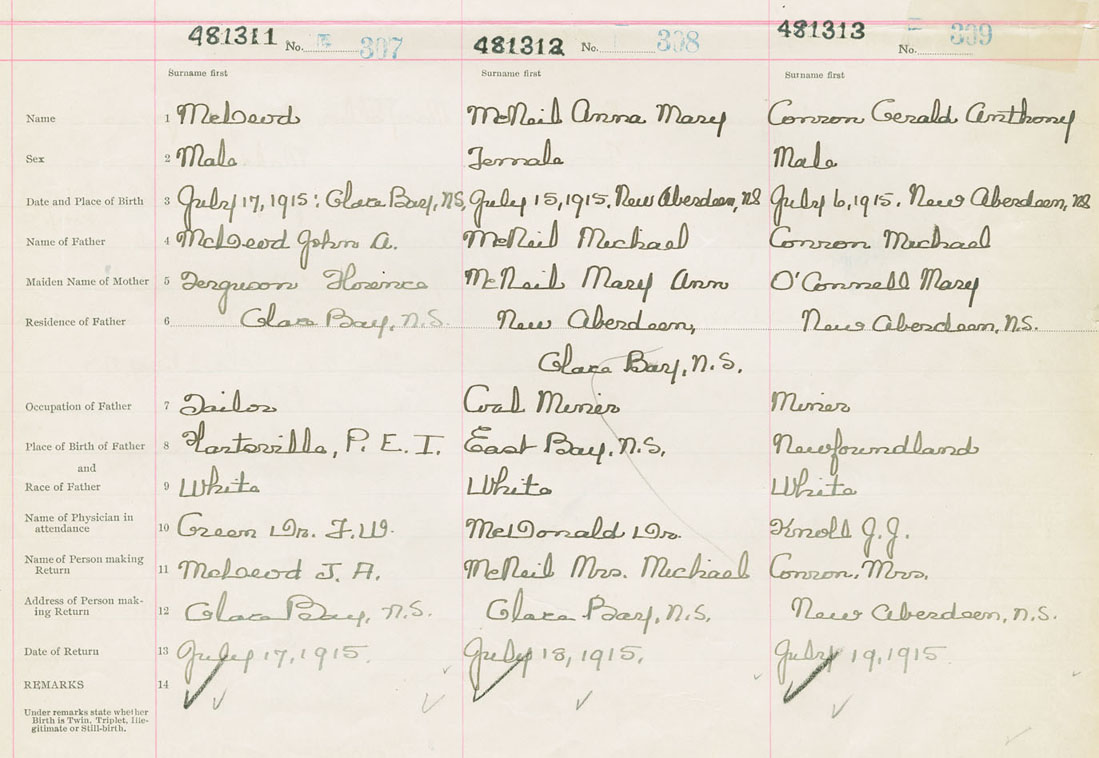 481311 No. 307 481312 No. 308 481313 No. 309
Surname first Surname first Surname first
Name 1 McLeod McNeil Anna Mary Conron Gerald Anthony
Sex 2 Male Female Male
Date and Place of Birth 3 July 17, 1915: Glace Bay, NS, July 15, 1915. New Aberdeen, NS July 6, 1915. New Aberdeen, NS
Name of Father 4 McLeod John A. McNeil Michael Conron Michael
Maiden Name of Mother 5 Ferguson Florence McNeil Mary Ann O'Connell Mary
Residence of Father 6 Glace Bay, N.S. New Aberdeen, New Aberdeen, N.S.
Glace Bay, N.S.
Occupation of Father 7 Tailor Coal Miner Miner
Place of Birth of Father 8 Hartsville, P. E. I. East Bay, N.S. Newfoundland
and
Race of Father 9 White White White
Name of Physician in
attendance 10 Green Dr. F.W. McDonald Dr. Knoll J.J.
Name of Person making
Return 11 McLeod J. A. McNeil Mrs. Michael Conron, Mrs.
Address of Person mak-
ing Return 12 Glace Bay, N.S. Glace Bay, N.S. New Aberdeen, N.S.
Date of Return 13 July 17, 1915. July 18, 1915. July 19, 1915
REMARKS 14
Under remarks state whether
Birth is Twin, Triplet, Ille-
gitimate or Still-birth.